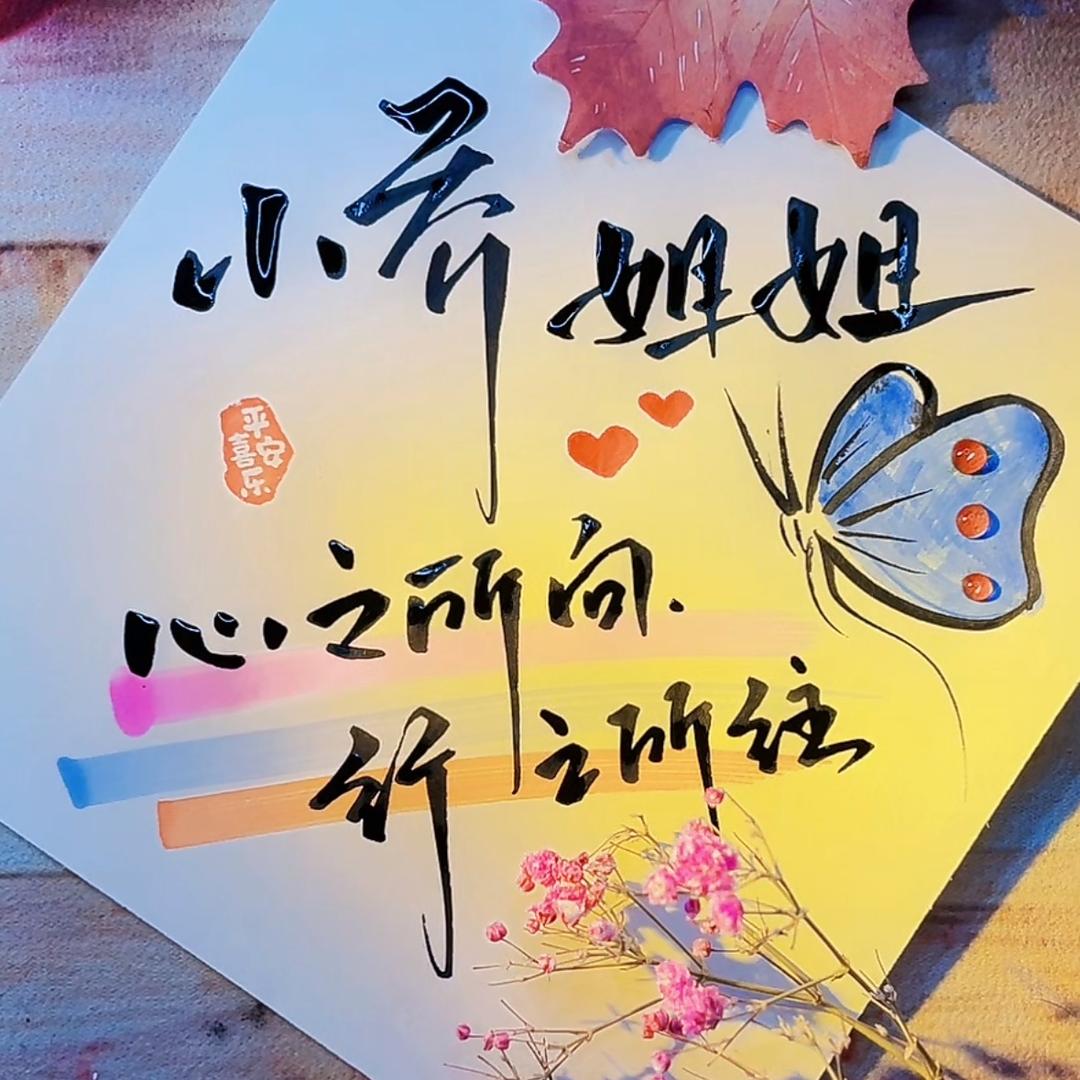 小乔姐姐
平安
喜乐
心之所向.
行之所往